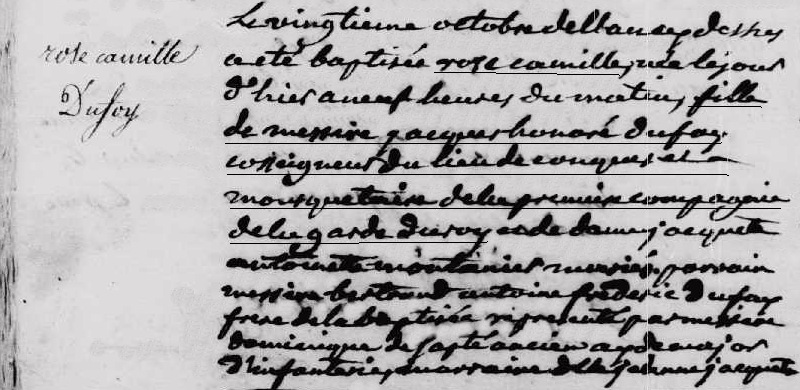 rose camille
Dufoy
Le vingtieme octobre de l'an
a eté baptisée rose camille, née le jour
d'hier a neuf heures du matin, fille
de messire jacques honoré dufay
cosseigneur du lieu de conques et
mousquetaire de la premiere compagnie
de la garde du roy et de dame jacquete
antoinete montanier mariés, parrain
messire bertrand antoine frederic Dufay
frere de la baptisée representé par messire
dominique de sapte ancien ayde major
d'infanterie, marraine delle jeanne jacquete